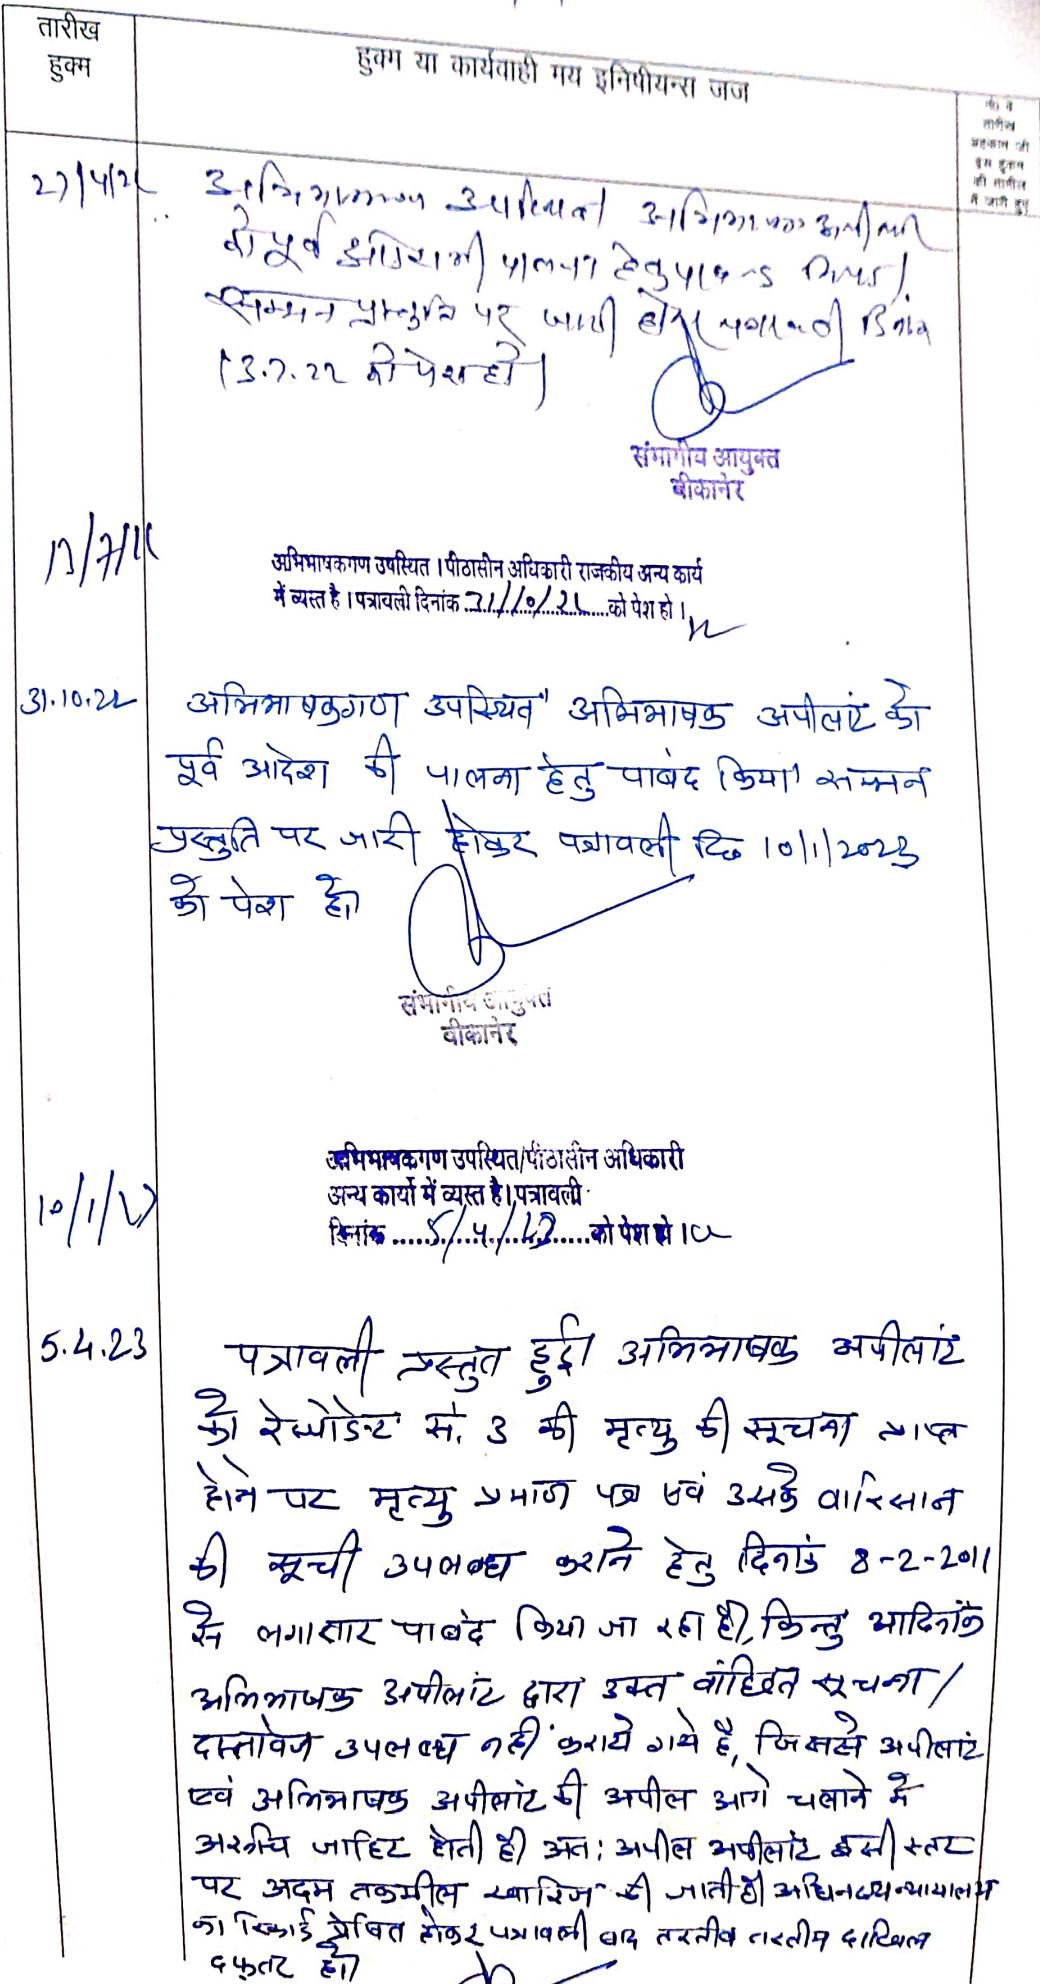 तारीख
हुक्म
हुक्म या कार्यवाही मय इनिषीयन्स जज
तारीख
की तामील
में जारी हुए
27/4/22 अभिभाषकगण उपस्थित। अभिभाषक अपीलांट
को पूर्व पालना हेतु पाबन्द किया।
सम्मन प्रस्तुति पर जारी होकर पत्रावली दिनांक
13.7.22 को पेश हो।
संभागीय आयुक्त
बीकानेर
अभिभाषकगण उपस्थित। पीठासीन अधिकारी राजकीय अन्य कार्य
में व्यस्त है। पत्रावली दिनांक 31/10/22 को पेश हो।
31.10.22 अभिभाषकगण उपस्थित। अभिभाषक अपीलांट को
पूर्व आदेश की पालना हेतु पाबंद किया। सम्मन
प्रस्तुति पर जारी होकर पत्रावली दि० 10/1/2023
को पेश हो।
संभागीय आयुक्त
बीकानेर
अभिभाषकगण उपस्थित/पीठासीन अधिकारी
10/1/23 अन्य कार्यो में व्यस्त है। पत्रावली
दिनांक 5/4/23 को पेश हो।
5.4.23 पत्रावली प्रस्तुत हुई। अभिभाषक अपीलांट
को रेस्पोडेन्ट सं. 3 की मृत्यु की सूचना प्राप्त
होने पर मृत्यु प्रमाण पत्र एवं उसके वारिसान
की सूची उपलब्ध कराने हेतु दिनांक 8-2-2011
से लगातार पाबंद किया जा रहा है, किन्तु आदिनांक
अभिभाषक अपीलांट द्वारा उक्त वांछित सूचना/
दस्तावेज उपलब्ध नहीं कराये गये है, जिससे अपीलांट
एवं अभिभाषक अपीलांट की अपील आगे चलाने में
अरूचि जाहिर होती है। अत: अपील अपीलांट इसी स्तर
पर अदम तकमील खारिज की जाती है। अधिनस्थ न्यायालय
का रिकार्ड प्रेषित होकर पत्रावली बाद तरतीब तरतीम दाखिल
दफ्तर हो।